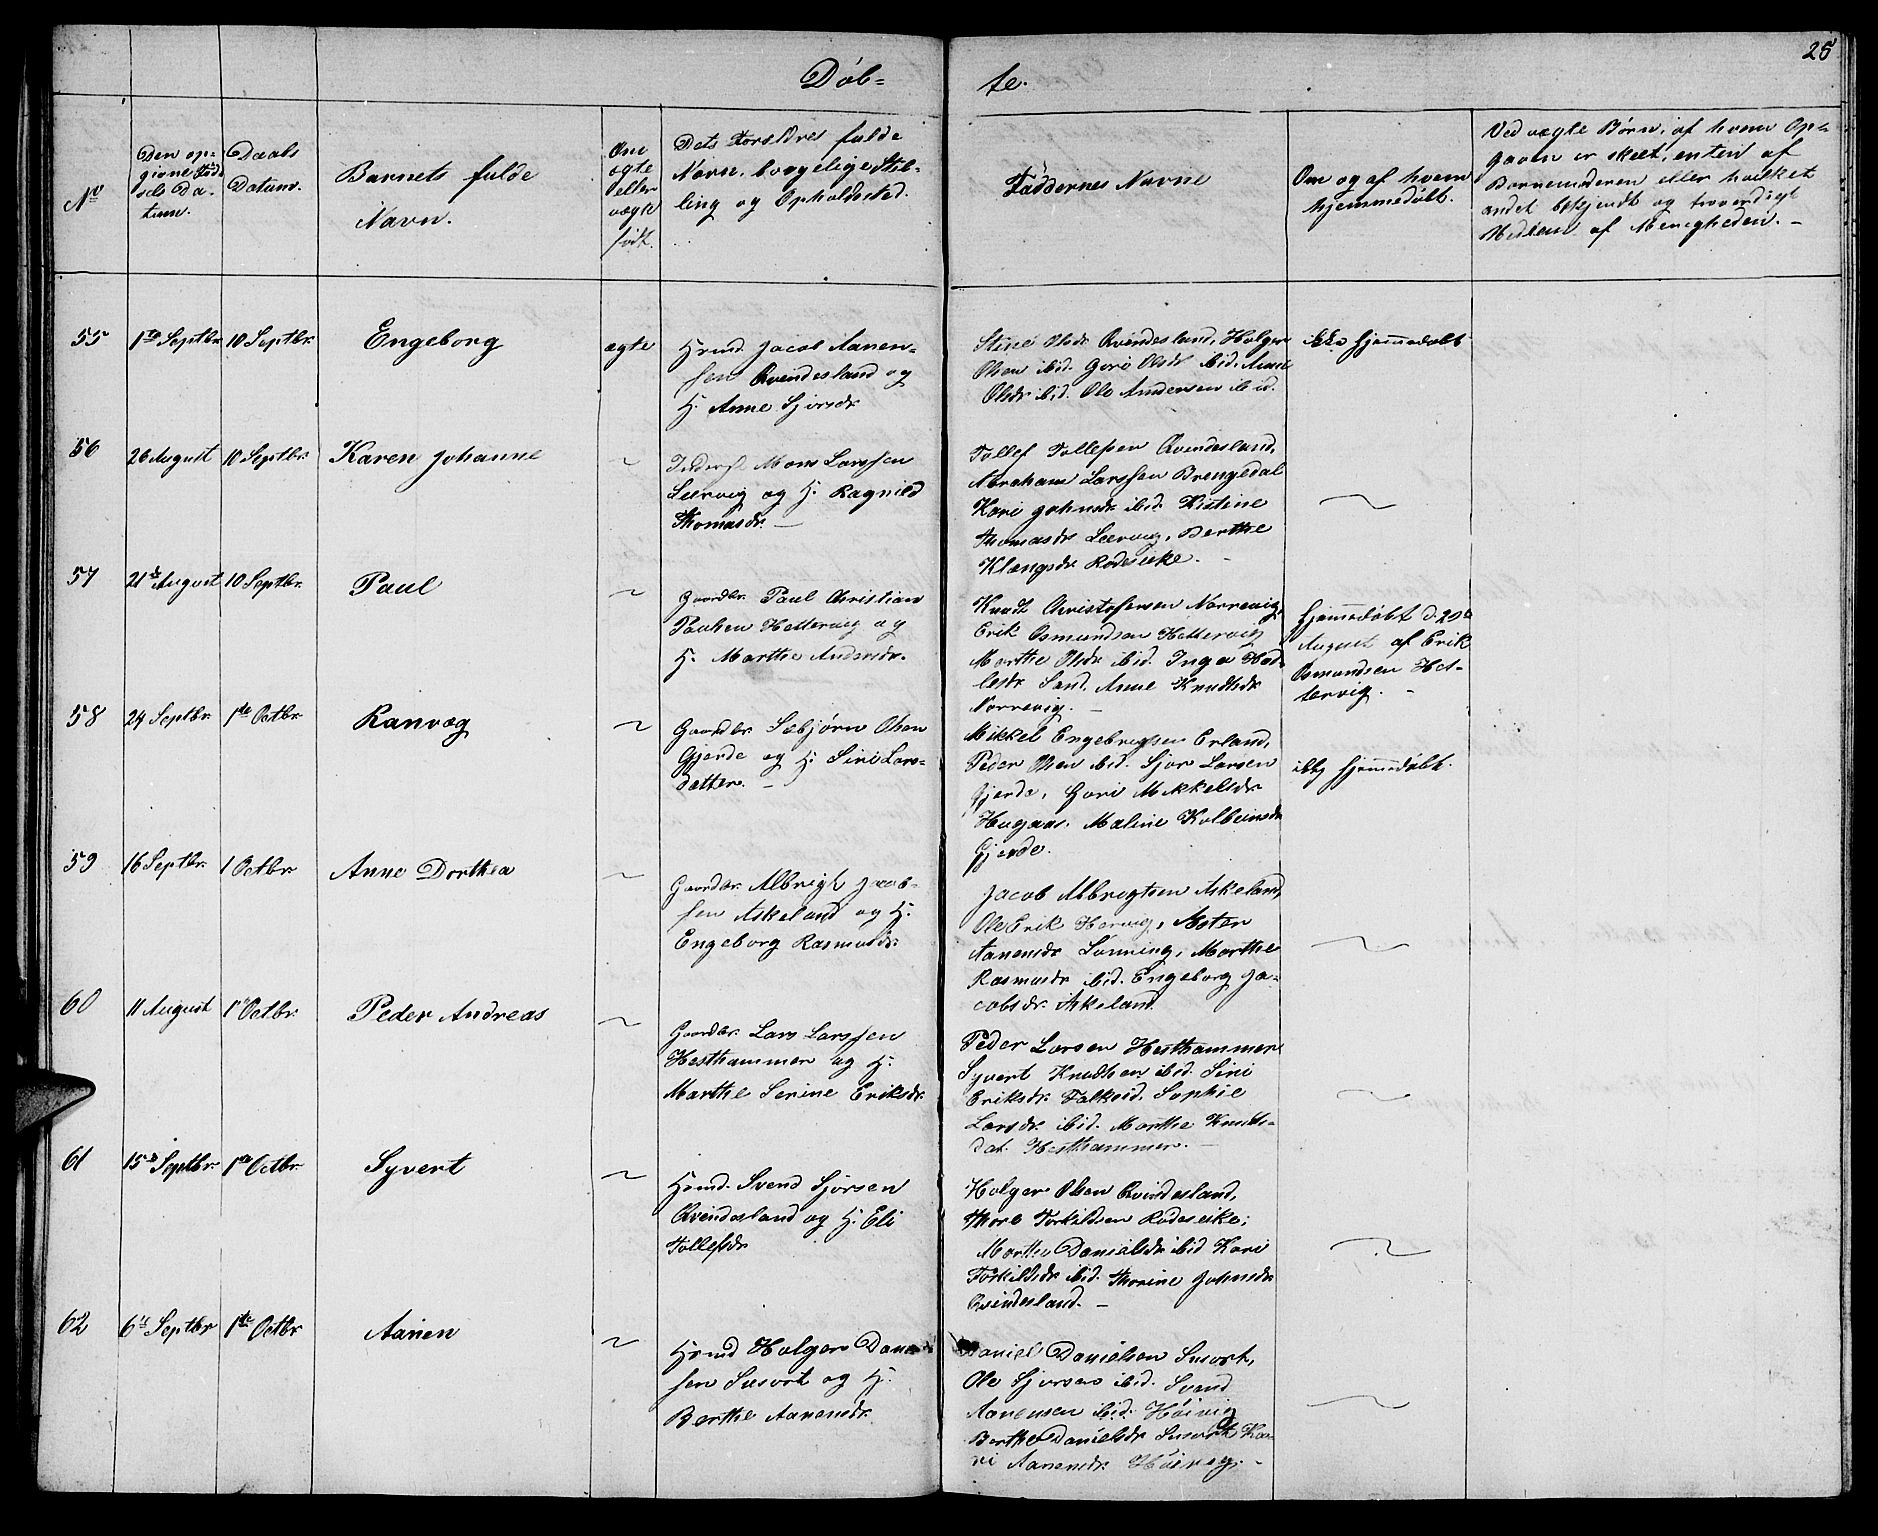 25
Døb=
te.
No
Den op=
givne Fød=
sels Da=
tum.
Daabs
Datum.
Barnets fulde
Navn.
Om
ægte
eller
uægte
født.
Dets Forældres fulde
Navn, borgelige Stil=
ling og Opholdssted.
Faddernes Navne
Om og af hvem
hjemmedøbt.
Ved uægte Børn, af hvem Op=
gaven er skeet, enten af
Barnemoderen eller hvilket
andet bekjendt og troværdigt
Medlem af Menigheden. –
55
1te Septbr.
10 Septbr.
Engeborg
ægte
Huusmd. Jacob Aanen=
sen Qvindesland og
H. Anne Sjursdr.
Stine Olsdr. Qvindesland, Holger
Olsen ibid. Guri Olsdr. ibid. Anne
Olsdr. ibid. Ole Andersen ibid.
ikke hjemmedøbt
56
26 August
10 Septbr.
Karen Johanne
~
Inderst Mons Larssen
Leervig og H. Ragnild
Thomasdr. –
Tollef Tollefsen Qvindesland,
Abraham Larssen Brengedal
Kari Johnsdr. ibid. Kistine
Thomasdr. Leervig, Berthe
Klængsdr. Rødseike. –
~
57
21de August
10 Septbr.
Paul
~
Gaardbr. Paul Christian
Paulsen Hettervig og
H. Marthe Andersdr.
Knudt Christofersen Norrevig,
Erik Osmundsen Hettervig
Marthe Olsdr. ibid. Inger Had=
lesdr. Sand, Anne Knudtsdr.
Norrevig. –
Hjemmedøbt d. 29de
August af Erik
Osmundsen Het=
tervig. –
58
24 Septbr.
1te Octbr.
Ranvæg
~
Gaardbr. Sæbjørn Olsen
Gjerde og H. Siri Lars=
datter. –
Mikkel Engebregtsen Erland,
Peder Olsen ibid. Sjur Larsen
Gjerde, Guri Mikkelsdr.
Hugaas, Maline Kolbeinsdr.
Gjerde.
ikke hjemmedøbt.
59
16 Septbr.
1 Octbr.
Anne Dorthea
~
Gaardbr. Albrigt Jacob=
sen Askeland og H.
Engeborg Rasmusdr.
Jacob Albregtsen Askeland,
Ole Erik Hervig, Aster
Aanensdr. Lunning, Marthe
Rasmusdr. ibid. Engeborg Ja=
cobsdr. Askeland.
~
60
11 August
1te Octbr.
Peder Andreas
~
Gaardbr. Lars Larssen
Hesthammer og H.
Marthe Serine Eriksdr.
Peder Larsen Hesthammer
Syvert Knudtsen ibid. Siri
Eriksdr. Falkeid. Sophie
Larsdr. ibid. Marthe Knuds=
dat. Hesthammer. –
~
61
15de Septbr.
1te Octbr.
Syvert
~
Huusmd. Svend Sjursen
Qvindesland og H. Eli
Tollefsdr.
Holger Olsen Qvindesland,
Thore Torkildsen Rødseike,
Marthe Danielsdr. ibid Kari
Torkildsdr. ibid. Thorine Johnsdr.
Qvindesland. –
~
62
6te Septbr.
1te Octbr.
Aanen
~
Huusmd Holger Daniel=
sen Susort og H.
Berthe Aanensdr.
Daniel Danielsen Susort,
Ole Sjursen ibid. Svend
Aanensen ibid. Høivig
Berthe Danielsdr. Susort, Ka=
ri Aanensdr. Høivig. –
~